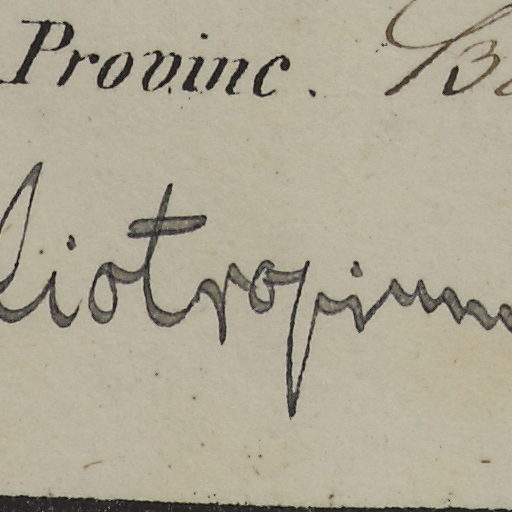 Provinc. B
liotropium